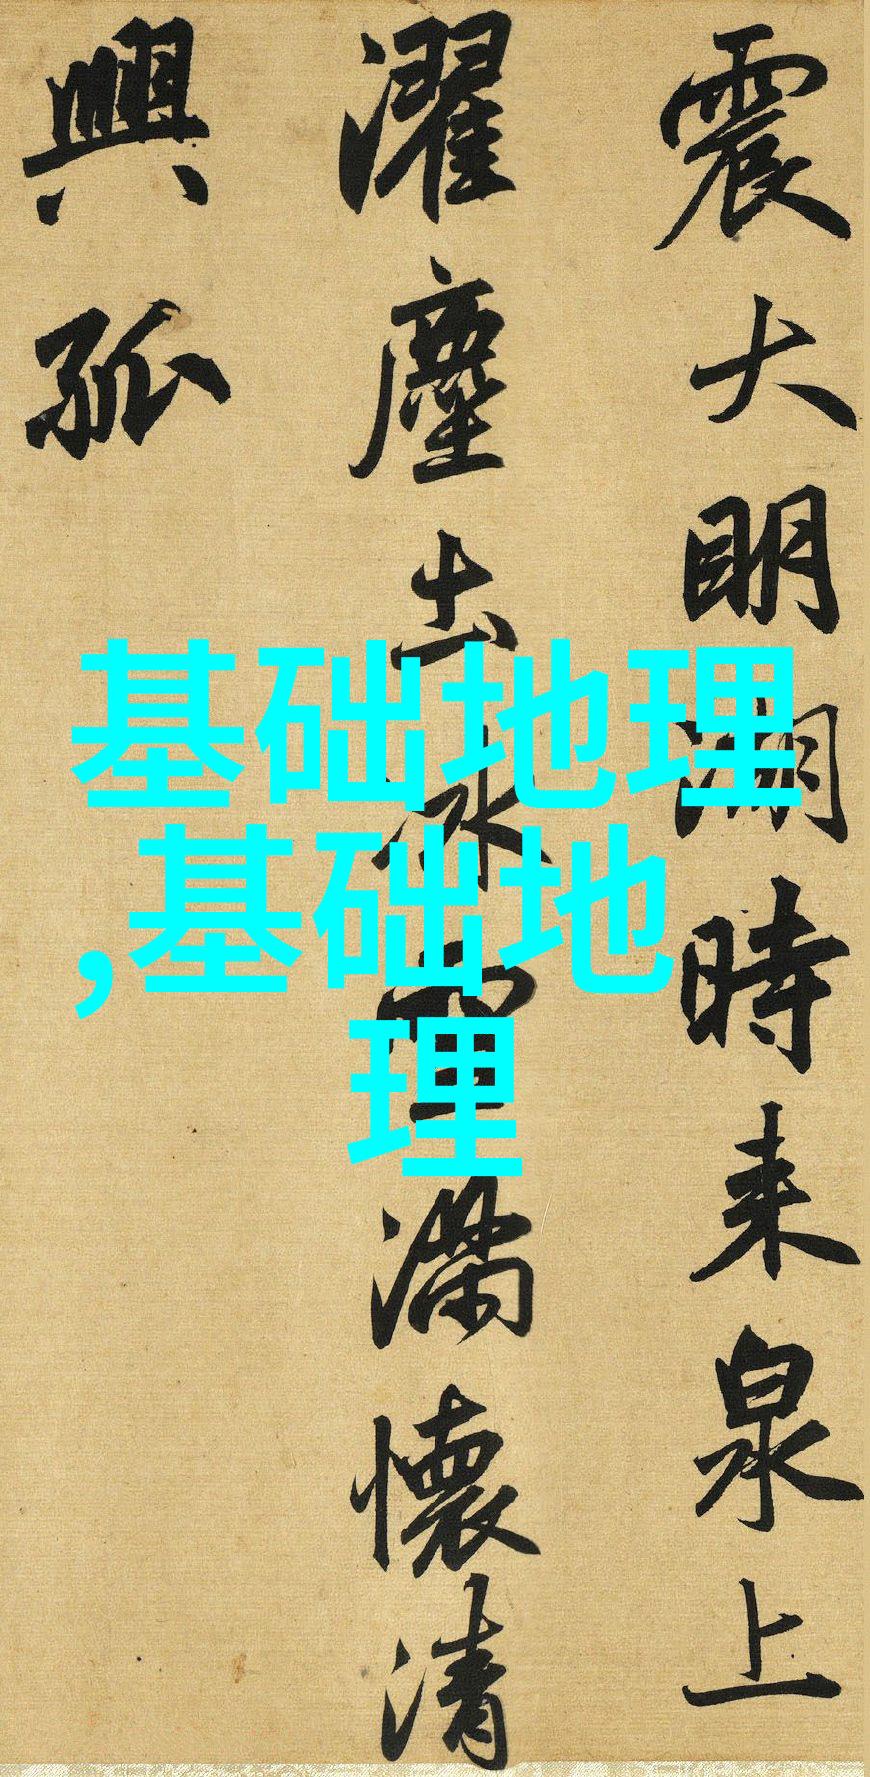 震大明湖時来泉上
濯塵土冰雪滿懷清
興孤
基础地理
,基础地
理